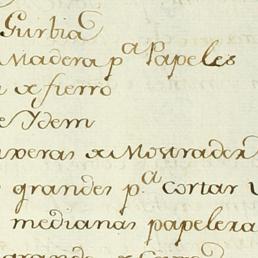 Gurbia
Madera pª Papeles
de fierro
Ydem
de Mostrador
grandes p.ª cortar
medianas papelera